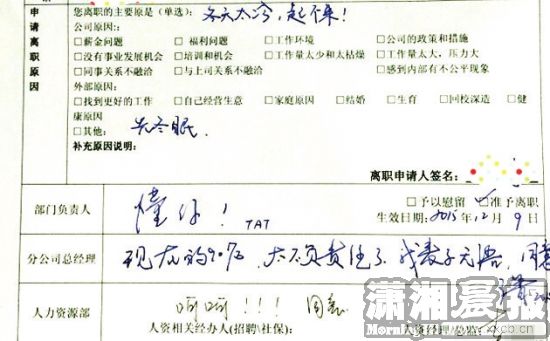 申请离职原因
您离职的主要原是(单选): 冬天太冷,起不来!
公司原因:
□薪金问题 □福利问题 □工作环境 □公司的政策和措施
□没有事业发展机会 □培训和机会 □工作量太少和太枯燥 □工作量太大,压力大
□同事关系不融洽 □与上司关系不融洽 □感到内部有不公平现象
外部原因:
□找到更好的工作 □自己经营生意 □家庭原因 □结婚 □生育 □回校深造 □健
康原因
□其他: 先冬眠.
补充原因说明:
离职申请人签名:
□予以慰留 □准予离职
部门负责人 懂你! TAT 生效日期: 2015年12月9日
分公司总经理 现在的90后,太不负责任了,我表示无语,同意
人力资源部 呵呵!!! 同意
人资相关经办人(招聘\社保): 人资经理/总监:
潇湘晨报